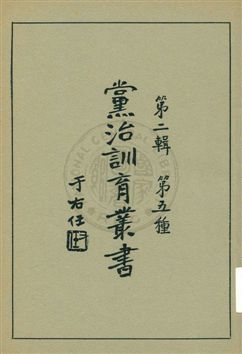 第二輯 第五種
黨治訓育叢書
于右任